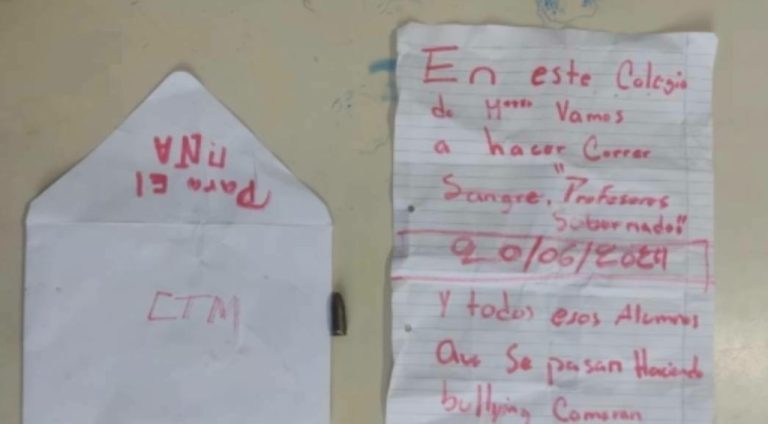 Para El
niÑA
CTM
En este Colegio
de M**** Vamos
a hacer Correr
Sangre, "Profesores
Sobornados"
20/06/2024
Y todos esos Alumnos
Que Se pasan Haciendo
bullying Comeran